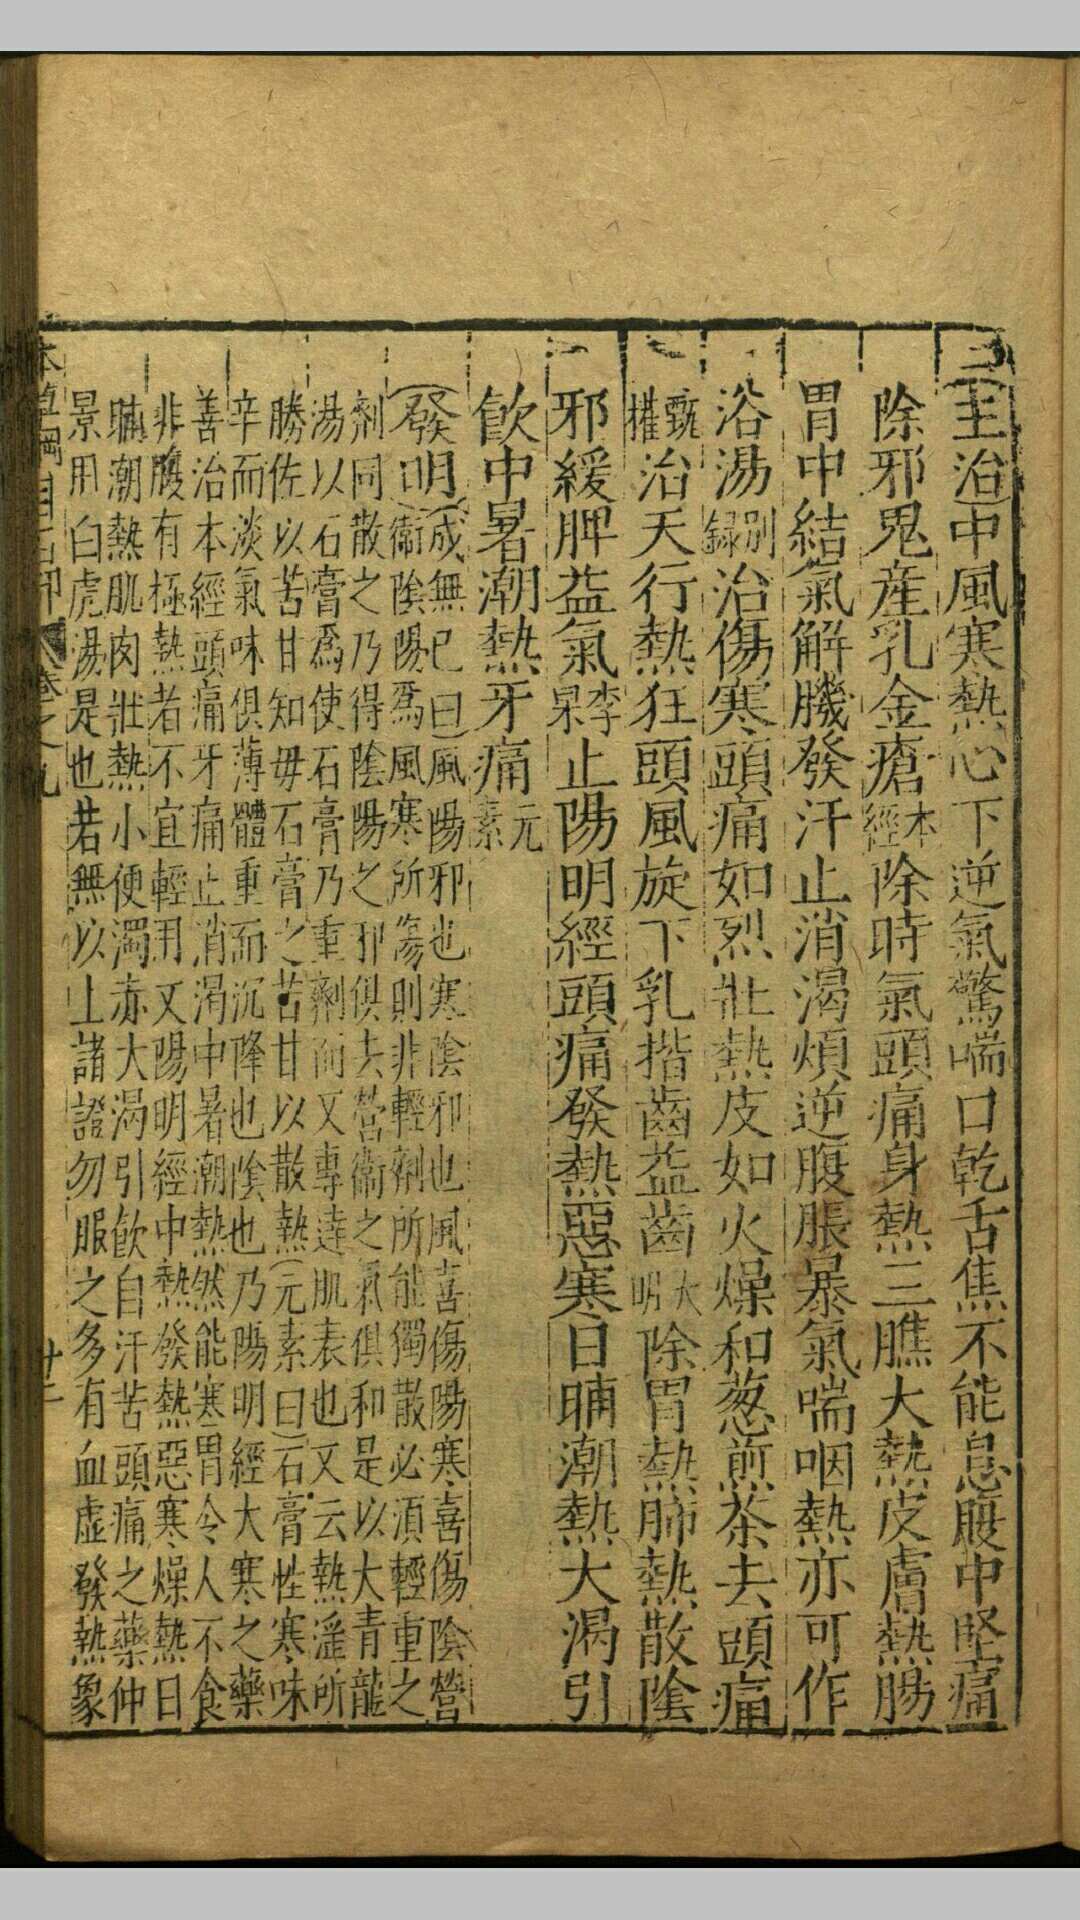 主治中風寒熱心下逆氣驚喘口乾舌焦不能息腹中堅痛
除邪鬼產乳金瘡本經除時氣頭痛身熱三膲大熱皮膚熱腸
胃中結氣解肌發汗止消渴煩逆腹脹暴氣喘咽熱亦可作
浴湯別錄治傷寒頭痛如烈壯熱皮如火燥和葱煎茶去頭痛
甄權治天行熱狂頭風旋下乳揩齒益齒大明除胃熱肺熱散陰
邪緩脾益氣李杲止陽明經頭痛發熱惡寒日晡潮熱大渴引
飲中暑潮熱牙痛元素
發明成無已曰風陽邪也寒陰邪也風喜傷陽寒喜傷陰營
衛陰陽爲風寒所傷則非輕劑所能獨散必須輕重之
劑同散之乃得陰陽之邪俱去營衛之氣俱和是以大青龍
湯以石膏爲使石膏乃重劑而又專達肌表也又云熱淫所
勝佐以苦甘知毋石膏之苦甘以散熱元素曰石膏性寒味
辛而淡氣味俱薄體重而沉降也陰也乃陽明經大寒之藥
善治本經頭痛牙痛止消渴中暑潮熱然能寒胃令人不食
非腹有極熱者不宜輕用又陽明經中熱發熱惡寒燥熱日
晡潮熱肌肉壯熱小便濁赤大渴引飲自汗苦頭痛之藥仲
景用白虎湯是也若無以上諸證勿服之多有血虛發熱象
本草綱目石部 卷之九 廿二